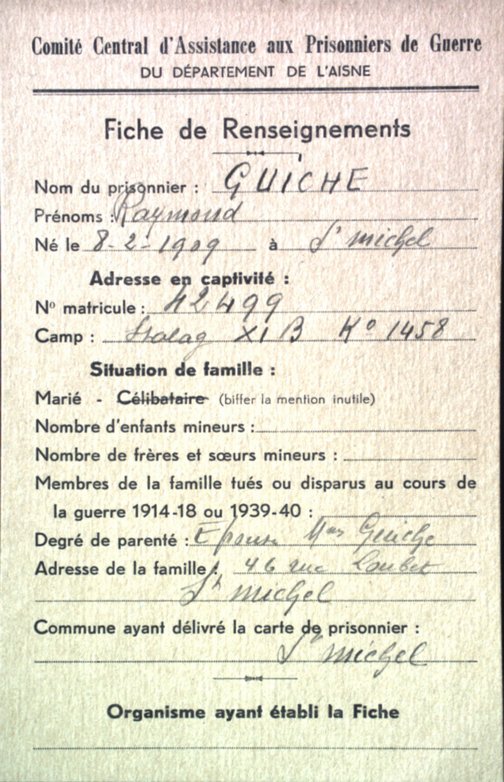 Comité Central d'Assistance aux Prisonniers de Guerre
DU DÉPARTEMENT DE L'AISNE
Fiche de Renseignements
Nom du prisonnier : GUICHE
Prénoms : Raymond
Né le 8-2-1909 à St michel
Adresse en captivité :
No matricule : 42499
Camp : Stalag XI B Ko 1458
Situation de famille :
Marié - Célibataire (biffer la mention inutile)
Nombre d'enfants mineurs :
Nombre de frères et sœurs mineurs :
Membres de la famille tués ou disparus au cours de
la guerre 1914-18 ou 1939-40 :
Degré de parenté : Epouse Mme Guiche
Adresse de la famille : 46 rue Loubet
St michel
Commune ayant délivré la carte de prisonnier :
St michel
Organisme ayant établi la Fiche